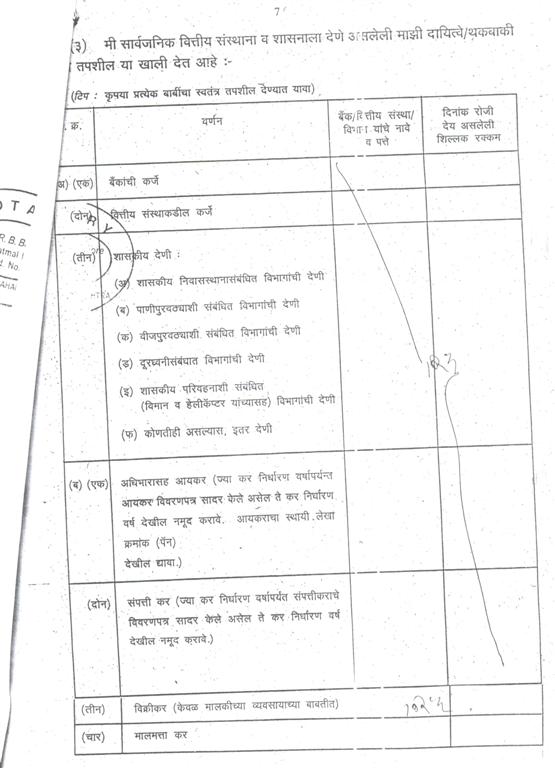 7
(३) मी सार्वजनिक वित्तीय संस्थाना व शासनाला देणे असलेली माझी दायित्वे/थकबाकी
तपशील या खाली देत आहे :-
(टिप : कृपया प्रत्येक बाबींचा स्वतंत्र तपशील देण्यात यावा)
. क्र. वर्णन बँक/वित्तीय संस्था/ विभाग यांचे नावे व पत्ते दिनांक रोजी देय असलेली शिल्लक रक्कम
अ) (एक) बँकांची कर्जे
(दोन) वित्तीय संस्थाकडील कर्जे
(तीन) शासकीय देणी :
(अ) शासकीय निवासस्थानासंबंधित विभागांची देणी
(ब) पाणीपुरवठ्याशी संबंधित विभागांची देणी
(क) वीजपुरवठ्याशी संबंधित विभागांची देणी
(ड) दूरध्वनीसंबधात विभागांची देणी
(इ) शासकीय परिवहनाशी संबंधित
(विमान व हेलीकॅप्टर यांच्यासह) विभागांची देणी
(फ) कोणतीही असल्यास, इतर देणी
(ब) (एक) अधिभारासह आयकर (ज्या कर निर्धारण वर्षापर्यन्त
आयकर विवरणपत्र सादर केले असेल ते कर निर्धारण
वर्ष देखील नमूद करावे. आयकराचा स्थायी लेखा
क्रमांक (पॅन)
देखील द्यावा.)
(दोन) संपत्ती कर (ज्या कर निर्धारण वर्षापर्यंत संपत्तीकराचे
विवरणपत्र सादर केले असेल ते कर निर्धारण वर्ष
देखील नमूद करावे.)
(तीन) विक्रीकर (केवळ मालकीच्या व्यवसायाच्या बाबतीत)
(चार) मालमत्ता कर
OTA
R.B.B.
d. No.